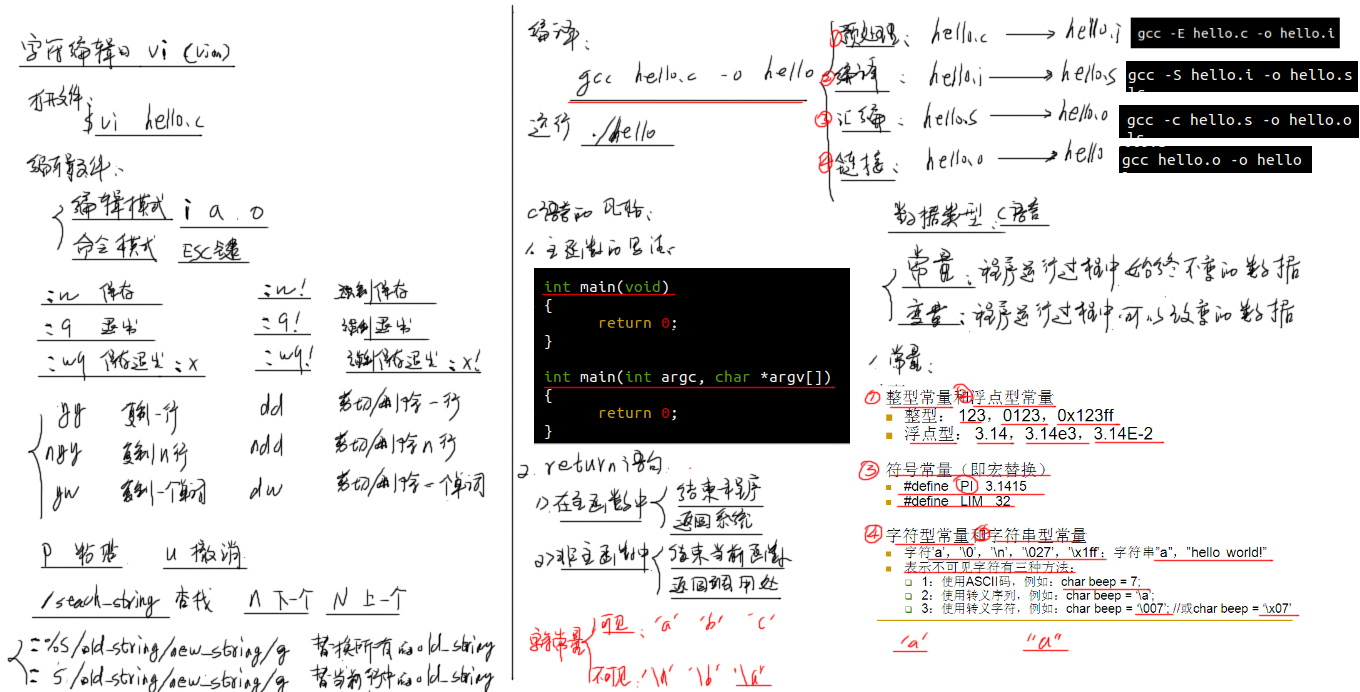 字符编辑口 vi (vim)
打开文件:
$vi hello.c
编辑文件:
编辑模式 i a o
命令模式 ESC键
:w 保存 :w! 强制保存
:q 退出 :q! 强制退出
:wq 保存退出 :x :wq! 强制保存退出 :x!
yy 复制一行 dd 剪切/删除一行
nyy 复制n行 ndd 剪切/删除n行
yw 复制一个单词 dw 剪切/删除一个单词
p 粘贴 u 撤消
/seach_string 查找 n 下一个 N 上一个
:%s/old_string/new_string/g 替换所有的old_string
: s/old_string/new_string/g 替当前行中的old_string
编译:
gcc hello.c -o hello
运行 ./hello
①预处理: hello.c → hello.i gcc -E hello.c -o hello.i
②编译: hello.i → hello.s gcc -S hello.i -o hello.s
③汇编: hello.s → hello.o gcc -c hello.s -o hello.o
④链接: hello.o → hello gcc hello.o -o hello
C语言的风格:
1. 主函数的写法:
int main(void)
{
return 0;
}
int main(int argc, char *argv[])
{
return 0;
}
2. return语句
1)在主函数中 结束程序
返回系统
2)非主函数中 结束当前函数
返回调用处
字符常量 可见: 'a' 'b' 'c'
不可见: '\n' '\b' '\a'
数据类型: C语言
常量: 程序运行过程中始终不变的数据
变量: 程序运行过程中可以改变的数据
1. 常量:
① 整型常量和浮点型常量
整型: 123, 0123, 0x123ff
浮点型: 3.14, 3.14e3, 3.14E-2
③ 符号常量(即宏替换)
#define PI 3.1415
#define LIM 32
④ 字符型常量和字符串型常量
字符'a', '\0', '\n', '\027', '\x1ff'; 字符串"a", "hello world!"
表示不可见字符有三种方法:
1: 使用ASCII码, 例如: char beep = 7;
2: 使用转义序列, 例如: char beep = '\a';
3: 使用转义字符, 例如: char beep = '\007'; //或char beep = '\x07'
'a' "a"